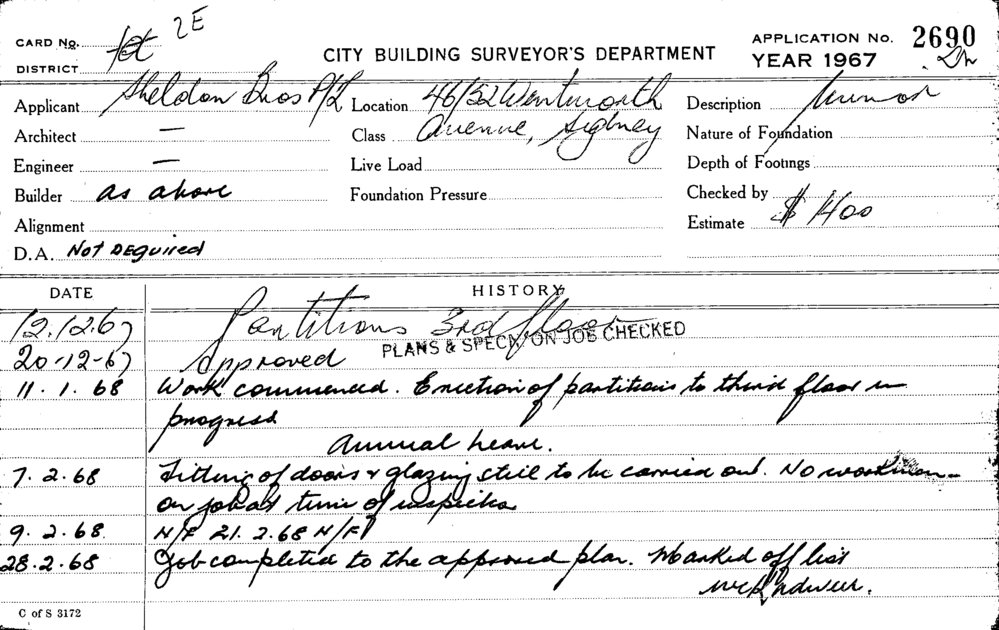 2E
CARD No.
DISTRICT
CITY BUILDING SURVEYOR'S DEPARTMENT
APPLICATION No. 2690
YEAR 1967
Applicant Sheldon Bros P/L Location 46/52 Wentworth Description Minor
Architect — Class Avenue, Sydney Nature of Foundation
Engineer — Live Load Depth of Footings
Builder as above Foundation Pressure Checked by
Alignment Estimate $ 1400
D.A. Not Required
DATE HISTORY
12.12.67 Partitions 3rd floor
PLANS & SPECN, ON JOB CHECKED
20-12-67 approved
11.1.68 Work commenced. Erection of partitions to third floor in
progress
Annual Leave.
7.2.68 Fitting of doors & glazing still to be carried out. No workmen
on job at time of inspection
9.2.68. N/F 21.2.68 N/F
28.2.68 Job completed to the approved plan. Marked off list
C of S 3172